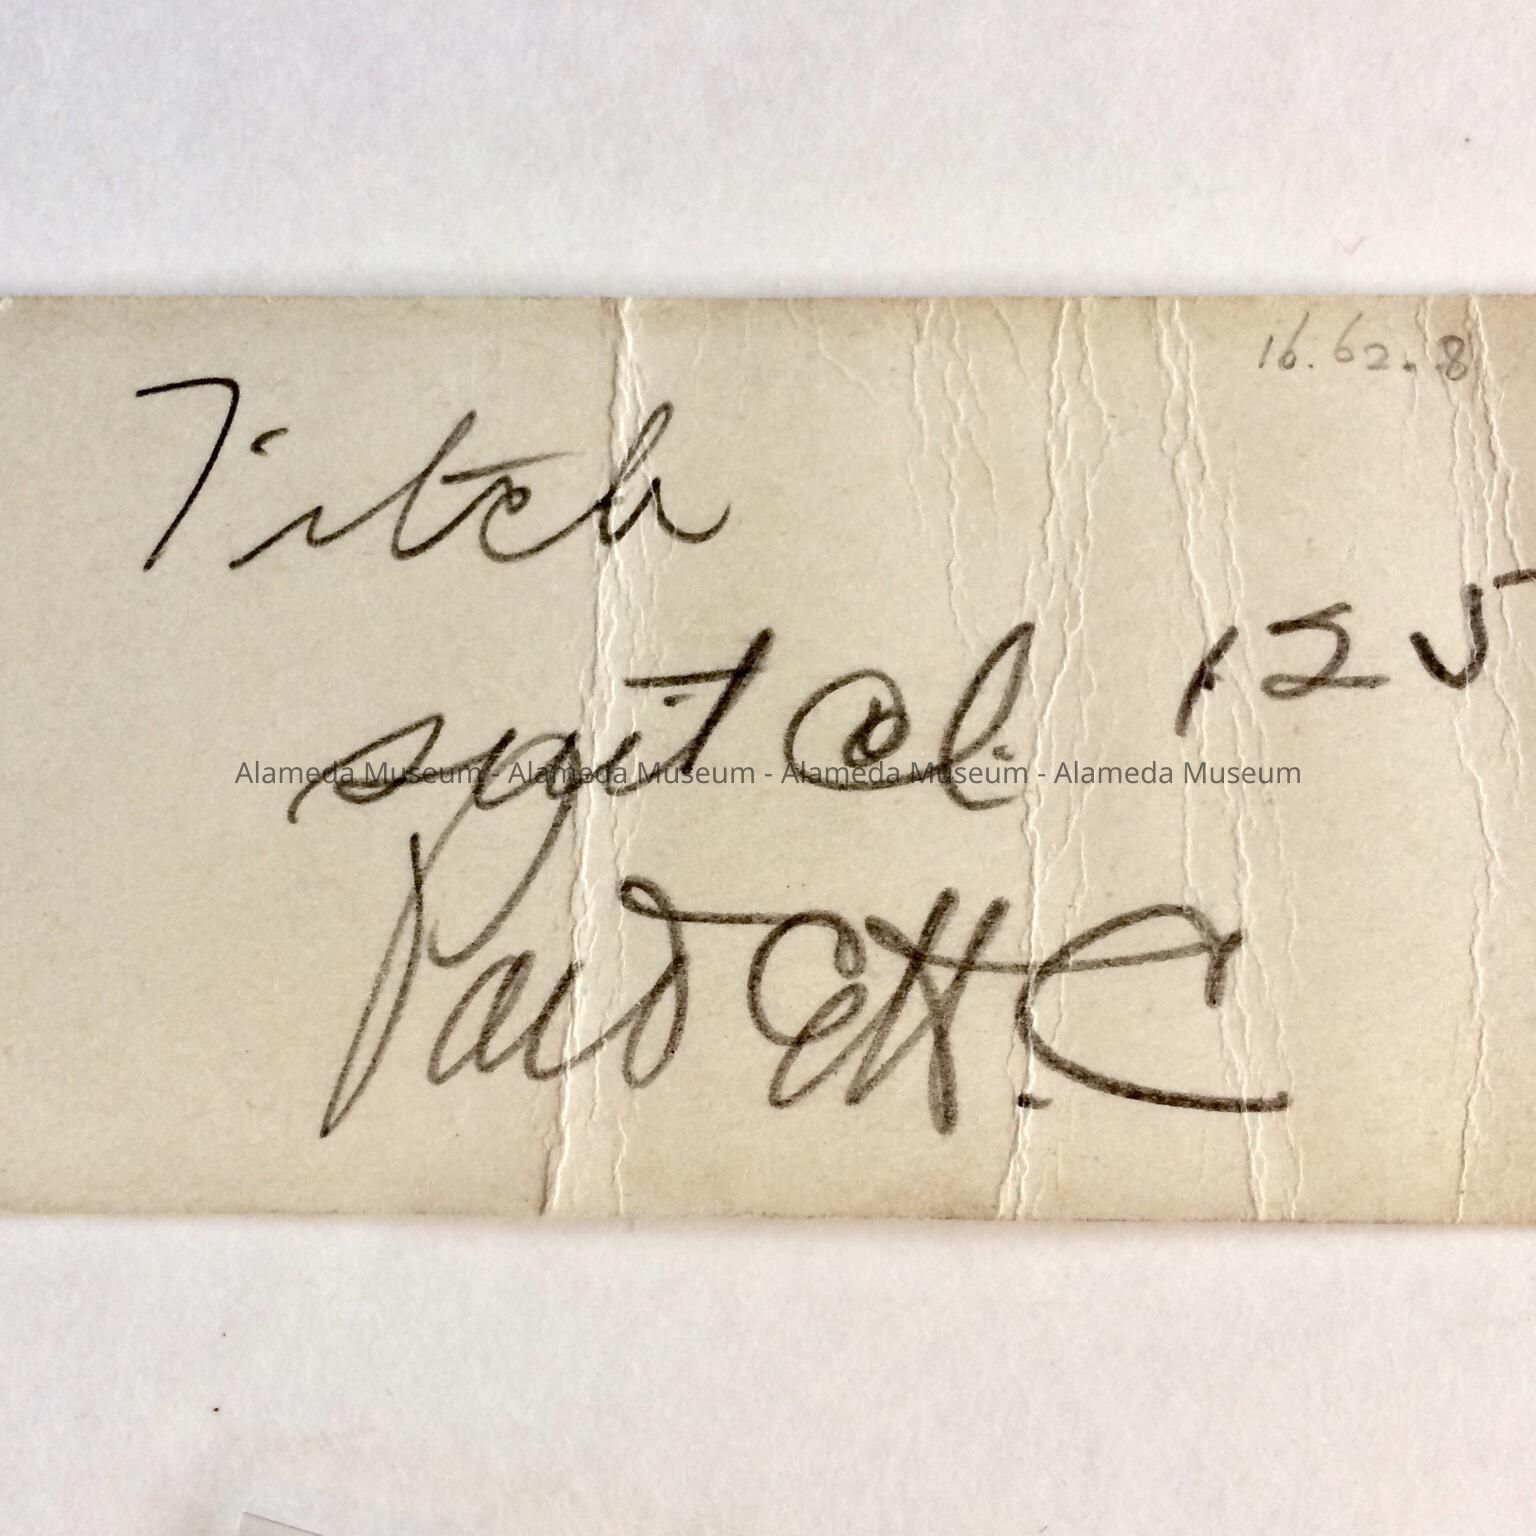 16.62.8
Titch
suit cl. 125
Paid EHC
Alameda Museum - Alameda Museum - Alameda Museum - Alameda Museum